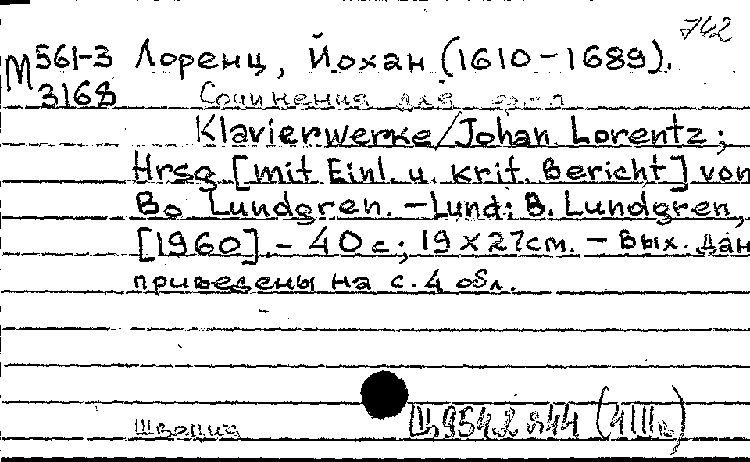 742
М 561-3 Лоренц, Йохан (1610-1689).
3168 Сочинения для
Klavierwerke/Johan Lorentz;
Hrsg [mit Einl. u. krit. Bericht] von
Bo Lundgren. - Lund: B. Lundgren,
[1960]. - 40 с; 19 x 27 cm. - Вых. дан
приведены на с. 4 обл.
Швеция